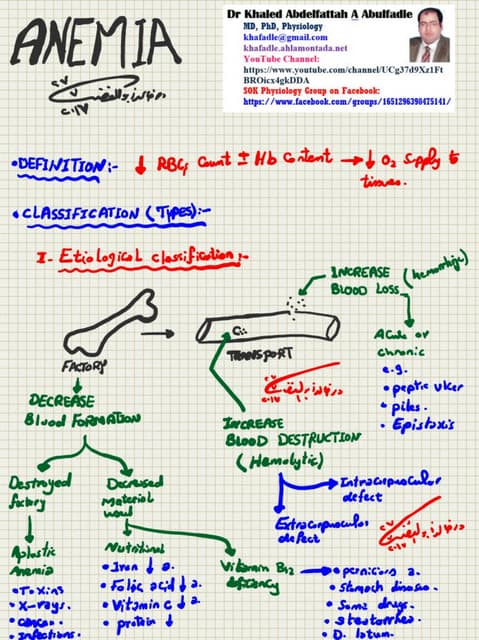 ANEMIA
Dr Khaled Abdelfattah A Abulfadle
MD, PhD, Physiology
khafadle@gmail.com
khafadle.ahlamontada.net
YouTube Channel:
https://www.youtube.com/channel/UCg37d9Xz1Ft
BROicx4gkDDA
SOK Physiology Group on Facebook:
https://www.facebook.com/groups/1651296398475141/
• DEFINITION:- ↓ RBCs Count ± Hb Content → ↓ O2 Supply to
tissues.
• CLASSIFICATION (Types):-
I- Etiological classification:-
INCREASE (hemorrhagic)
BLOOD LOSS
FACTORY
TRANSPORT
Acute or
chronic
e.g.
• peptic ulcer
• piles.
• Epistaxis
DECREASE
Blood FORMATION
INCREASE
BLOOD DESTRUCTION
(Hemolytic)
Intracorpuscular
defect
Extracorpuscular
defect
Destroyed
factory
Decreased
Material
Aplastic
Anemia
• Toxins
• X-rays.
• cancer.
• infections.
Nutritional
• Iron ↓ a.
• Folic acid ↓ a.
• Vitamin C ↓ a.
• protein ↓
Vitamin B12
deficiency
• pernicious a.
• stomach disease.
• Some drugs.
• steatorrhea.
• D. latum.